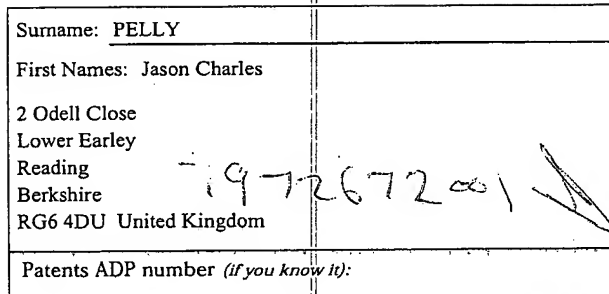 Surname: PELLY
First Names: Jason Charles
2 Odell Close
Lower Earley
Reading
Berkshire
RG6 4DU United Kingdom
7972672001
Patents ADP number (if you know it):